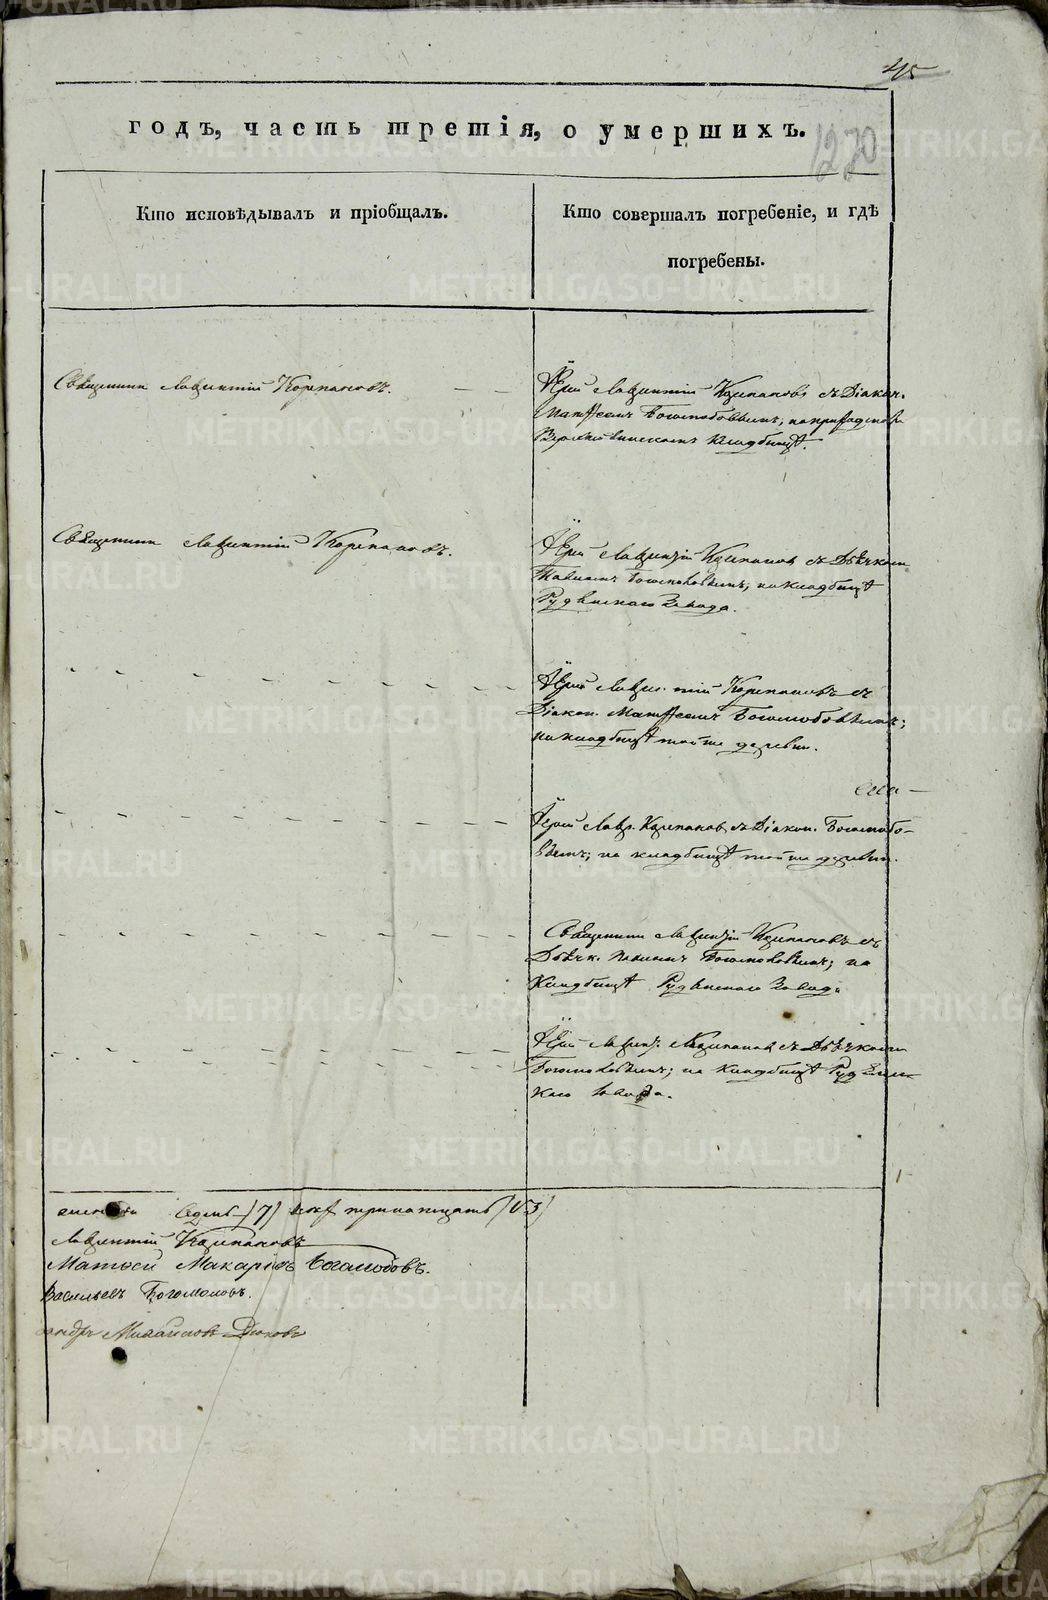 45
годъ, часть третія, о умершихъ.
1270
Кто исповѣдывалъ и пріобщалъ.
Кто совершалъ погребеніе, и гдѣ
погребены.
Священникъ Лаврентій Корепановъ.
Іерей Лаврентій Корепановъ съ Діакон.
Матѳеемъ Боголюбовымъ, на приходском
кладбищѣ.
Священникъ Лаврентій Корепановъ.
Іерей Лаврентій Корепановъ съ Дьячкомъ
Богомоловымъ, на кладбищѣ
Рудянскаго Завода.
Іерей Лаврентій Корепановъ съ
Діакон. Матѳеемъ Боголюбовымъ;
на кладбищѣ той же деревни.
Іерей Лавр. Корепановъ съ Діакон. Боголюбо-
вымъ; на кладбищѣ той же деревни.
Священникъ Лаврентій Корепановъ съ
Дьячк. Богомоловымъ; на
Кладбищѣ Рудянскаго Завода
Іерей Лаврен. Корепановъ съ Дьячкомъ
Богомоловымъ; на кладбищѣ Рудянс-
каго Завода.
Седмь (7) тринатцать (13)
Лаврентій Корепановъ
Матѳей Макаріевъ Боголюбовъ.
Васильевъ Богомоловъ.
андръ Михайловъ
METRIKI.GASO-URAL.RU